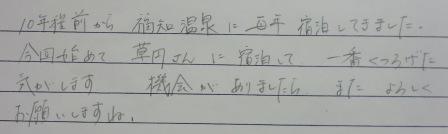 10年程前から 福知温泉に毎年 宿泊してきました.
今回始めて 草円さんに宿泊して 一番くつろげた
気がします 機会がありましたら また よろしく
お願いしますね.